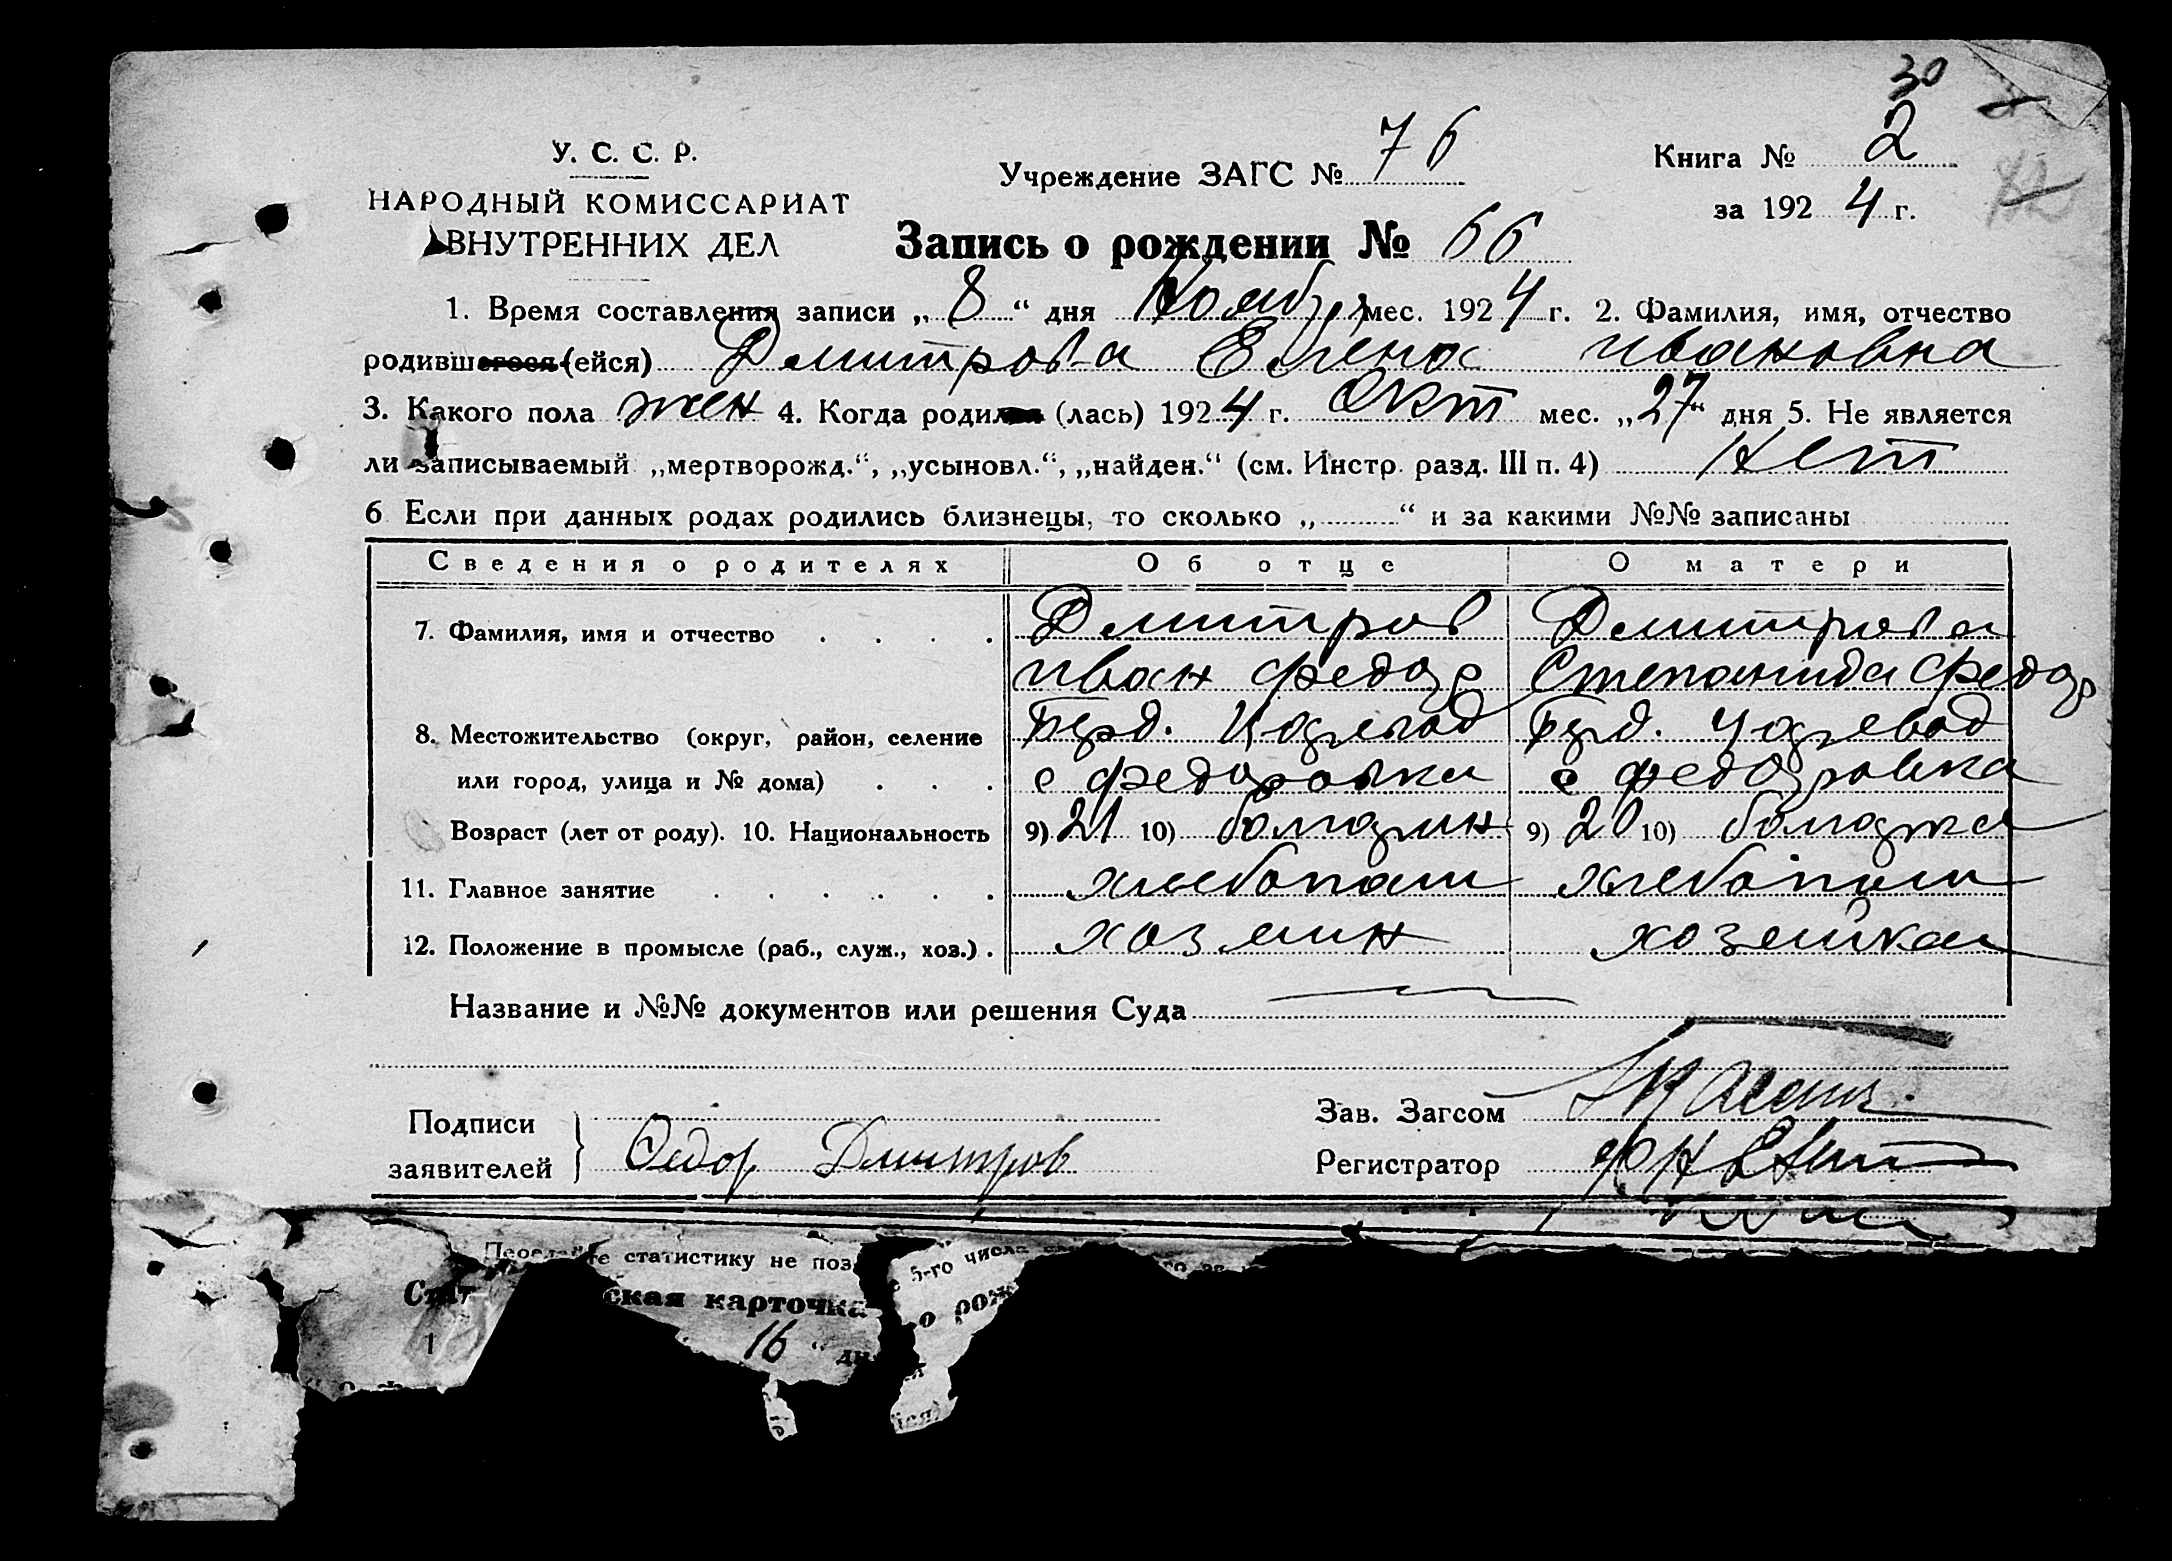 30
У. С. С. Р.
НАРОДНЫЙ КОМИССАРИАТ
ВНУТРЕННИХ ДЕЛ
Учреждение ЗАГС № 76
Книга № 2
за 1924 г.
Запись о рождении № 66
1. Время составления записи „ 8 “ дня Ноябр мес. 1924 г. 2. Фамилия, имя, отчество
родившегося (ейся) Дмитрова Елена Ивановна
3. Какого пола жен 4. Когда родился (лась) 1924 г. Окт мес. „27“ дня 5. Не является
ли записываемый „мертворожд.“, „усыновл.“, „найден.“ (см. Инстр. разд. III п. 4) Нет
6 Если при данных родах родились близнецы, то сколько „ “ и за какими №№ записаны
Сведения о родителях Об отце О матери
7. Фамилия, имя и отчество Дмитров Дмитрова
Иван Федор Степанида Федор
8. Местожительство (округ, район, селение Берд. Берд.
или город, улица и № дома) с Федоровка с Федоровка
Возраст (лет от роду). 10. Национальность 9) 21 10) болгарин 9) 20 10) болгарка
11. Главное занятие хлебопаш хлебопаш
12. Положение в промысле (раб., служ., хоз.) хозяин хозяйка
Название и №№ документов или решения Суда
Подписи
заявителей
Федор Дмитров
Зав. Загсом
Регистратор
те статистику не поз
5-го числа
Стат
ская карточка
о рож
16 “ дн